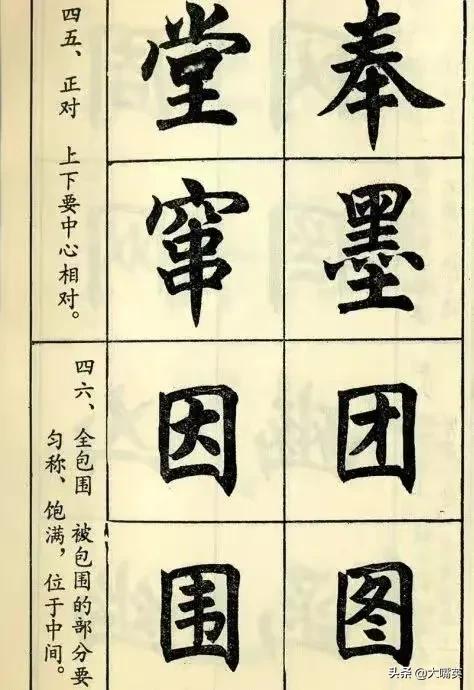 四五、正对 上下要中心相对。
奉
堂
墨
窜
四六、全包围 被包围的部分要
匀称、饱满，位于中间。
团
因
图
围
头条 @大嘴英